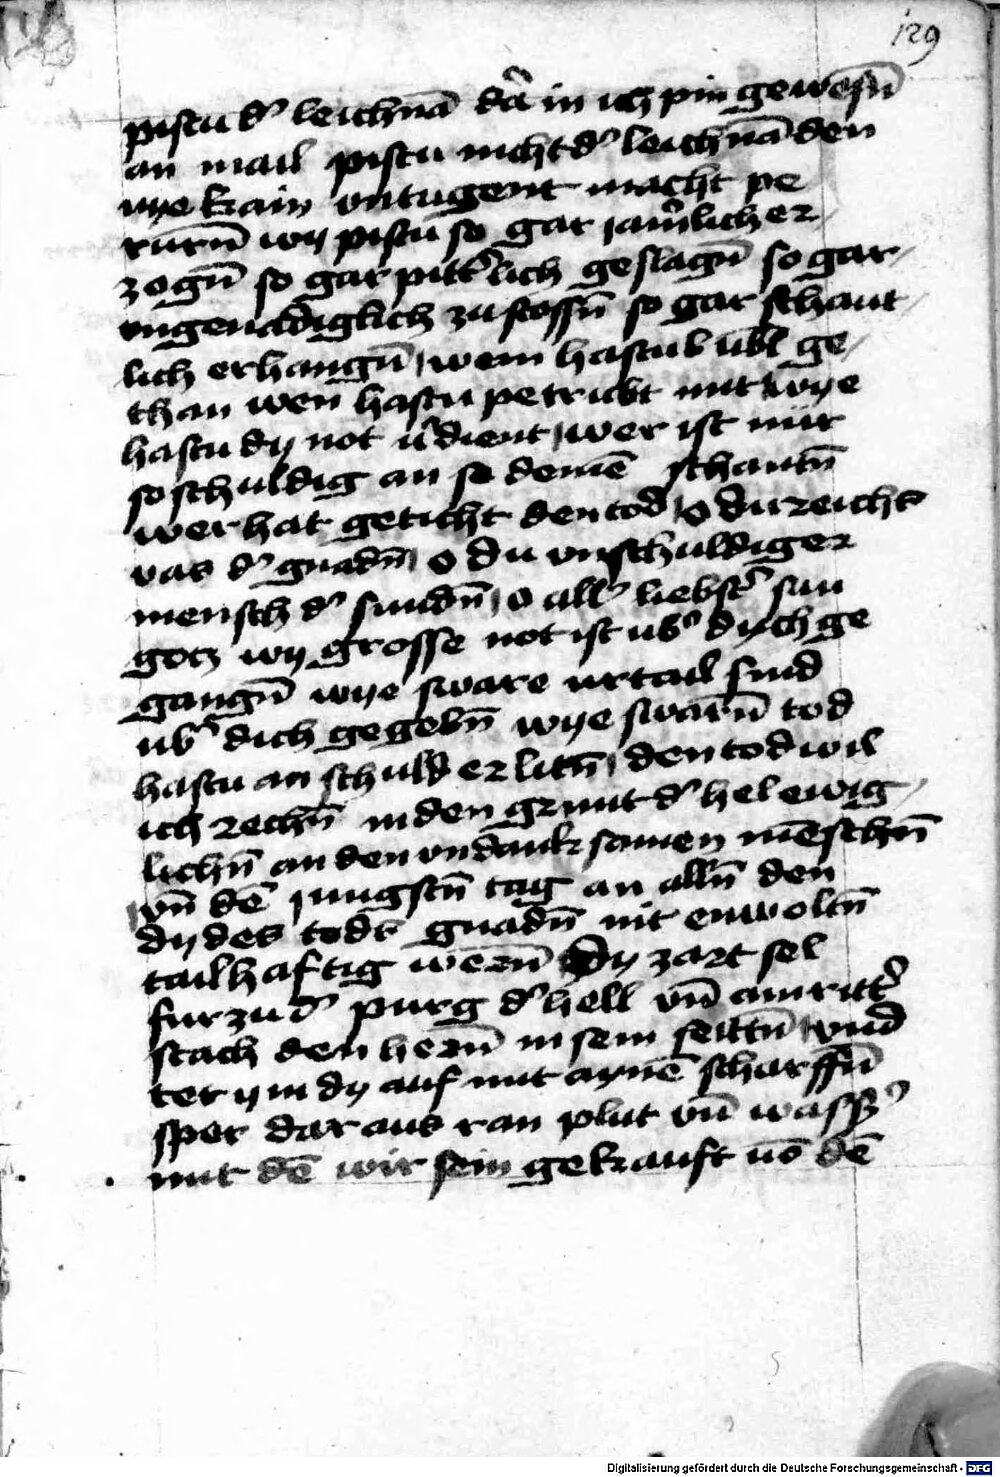 129
pistu dˀ leichnā dˀa in ich pin gewesn̄
an mail pistu nicht dˀ leichnā den
nye kain vntugent macht pe
rurn̄ wy pistu so gar iam̄lich er
zogn̄ so gar pittˀlich geslagn̄ so gar
vngenadiglich zu stossn̄ so gar schant
lich erhangn̄ wem hastu übl ge
than wen hastu petrubt mit wye
hastu dy not v̄dient wer ist mir
so schuldig an so deinē schantn̄
wer hat geticht den tod o du reichts
vas dˀ gnadn̄ o du vnschuldiger
mensch dˀ sundn̄ o allˀ liebstˀ sun
gocz wy grosse not ist ubˀ dych ge
gangn̄ wye sware urtail sind
ubˀ dich gegebn̄ wye swarn̄ tod
hastu an schuld erlitn̄ den tod wil
ich rechn̄ in den grunt dˀ hel ewig
lichn̄ an den vndanksamen mēschn̄
vn̄ dē iungstn̄ tag an alln̄ den
dy des tods gnadn̄ nit enwoltn̄
tailhaftig wern̄ Dy zart sel
fur zu dˀ purg dˀ hell vn̄ ain rittˀ
stach den hern̄ in sein seittn̄ vnd
ter ym dy auf mit aynē scharffn̄
sper dar aus ran plut vn̄ wassˀ
mit dē wir sein gekauft vō dē
Digitalisierung gefördert durch die Deutsche Forschungsgemeinschaft - DFG